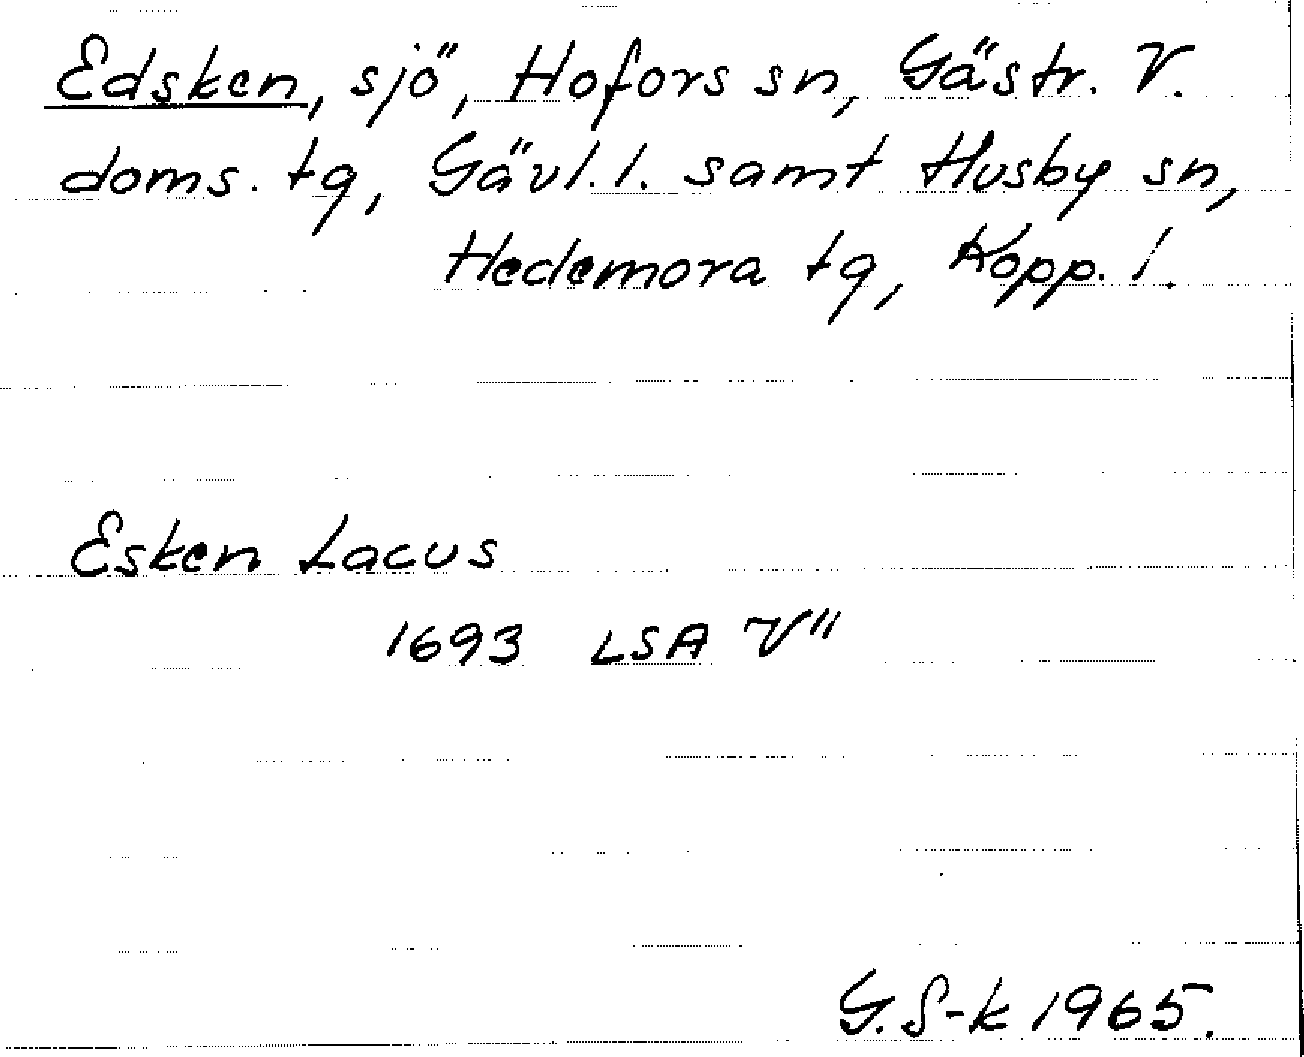 Edsken, sjö, Hofors sn, Gästr. V.
doms. tg, Gävl. l. samt Husby sn,
Hedemora tg, Kopp. l.
Esken Lacus
1693 LSA V"
G. S-k 1965.